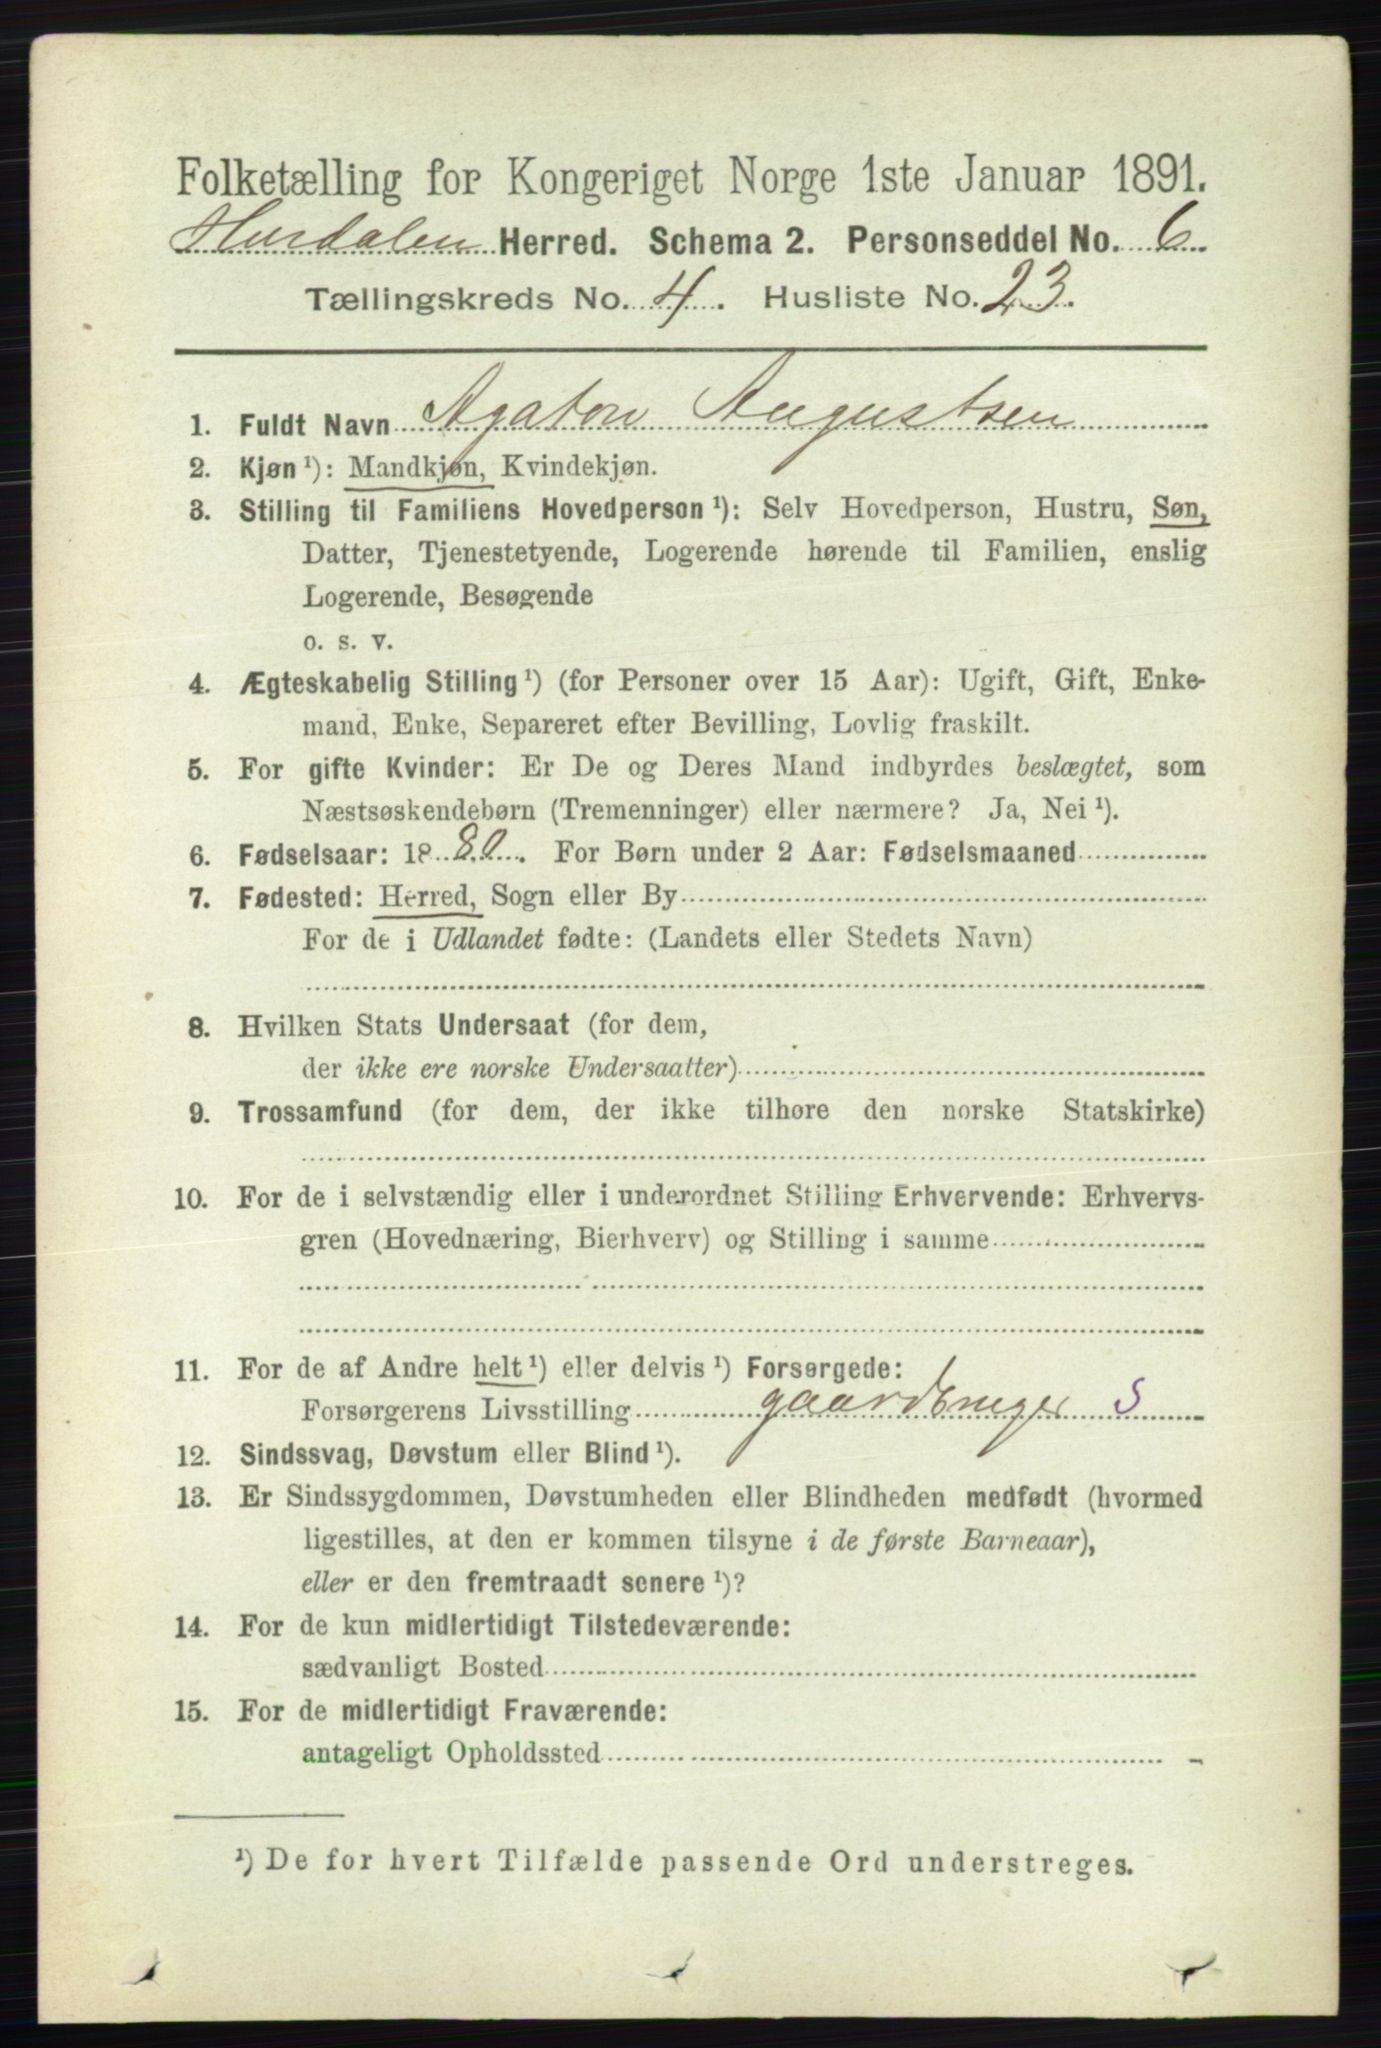 Folketælling for Kongeriget Norge 1ste Januar 1891.
Hurdalen Herred. Schema 2. Personseddel No. 6.
Tællingskreds No. 4. Husliste No. 23.
1. Fuldt Navn Agaton Augustsen
2. Kjøn ¹): Mandkjøn, Kvindekjøn.
3. Stilling til Familiens Hovedperson ¹): Selv Hovedperson, Hustru, Søn,
Datter, Tjenestetyende, Logerende hørende til Familien, enslig
Logerende, Besøgende
o. s. v.
4. Ægteskabelig Stilling ¹) (for Personer over 15 Aar): Ugift, Gift, Enke-
mand, Enke, Separeret efter Bevilling, Lovlig fraskilt.
5. For gifte Kvinder: Er De og Deres Mand indbyrdes beslægtet, som
Næstsøskendebørn (Tremenninger) eller nærmere? Ja, Nei ¹).
6. Fødselsaar: 1880. For Børn under 2 Aar: Fødselsmaaned
7. Fødested: Herred, Sogn eller By
For de i Udlandet fødte: (Landets eller Stedets Navn)
8. Hvilken Stats Undersaat (for dem,
der ikke ere norske Undersaatter)
9. Trossamfund (for dem, der ikke tilhøre den norske Statskirke)
10. For de i selvstændig eller i underordnet Stilling Erhvervende: Erhvervs-
gren (Hovednæring, Bierhverv) og Stilling i samme
11. For de af Andre helt ¹) eller delvis ¹) Forsørgede:
Forsørgerens Livsstilling gaardbruger S
12. Sindssvag, Døvstum eller Blind ¹).
13. Er Sindssygdommen, Døvstumheden eller Blindheden medfødt (hvormed
ligestilles, at den er kommen tilsyne i de første Barneaar),
eller er den fremtraadt senere ¹)?
14. For de kun midlertidigt Tilstedeværende:
sædvanligt Bosted
15. For de midlertidigt Fraværende:
antageligt Opholdssted
¹) De for hvert Tilfælde passende Ord understreges.